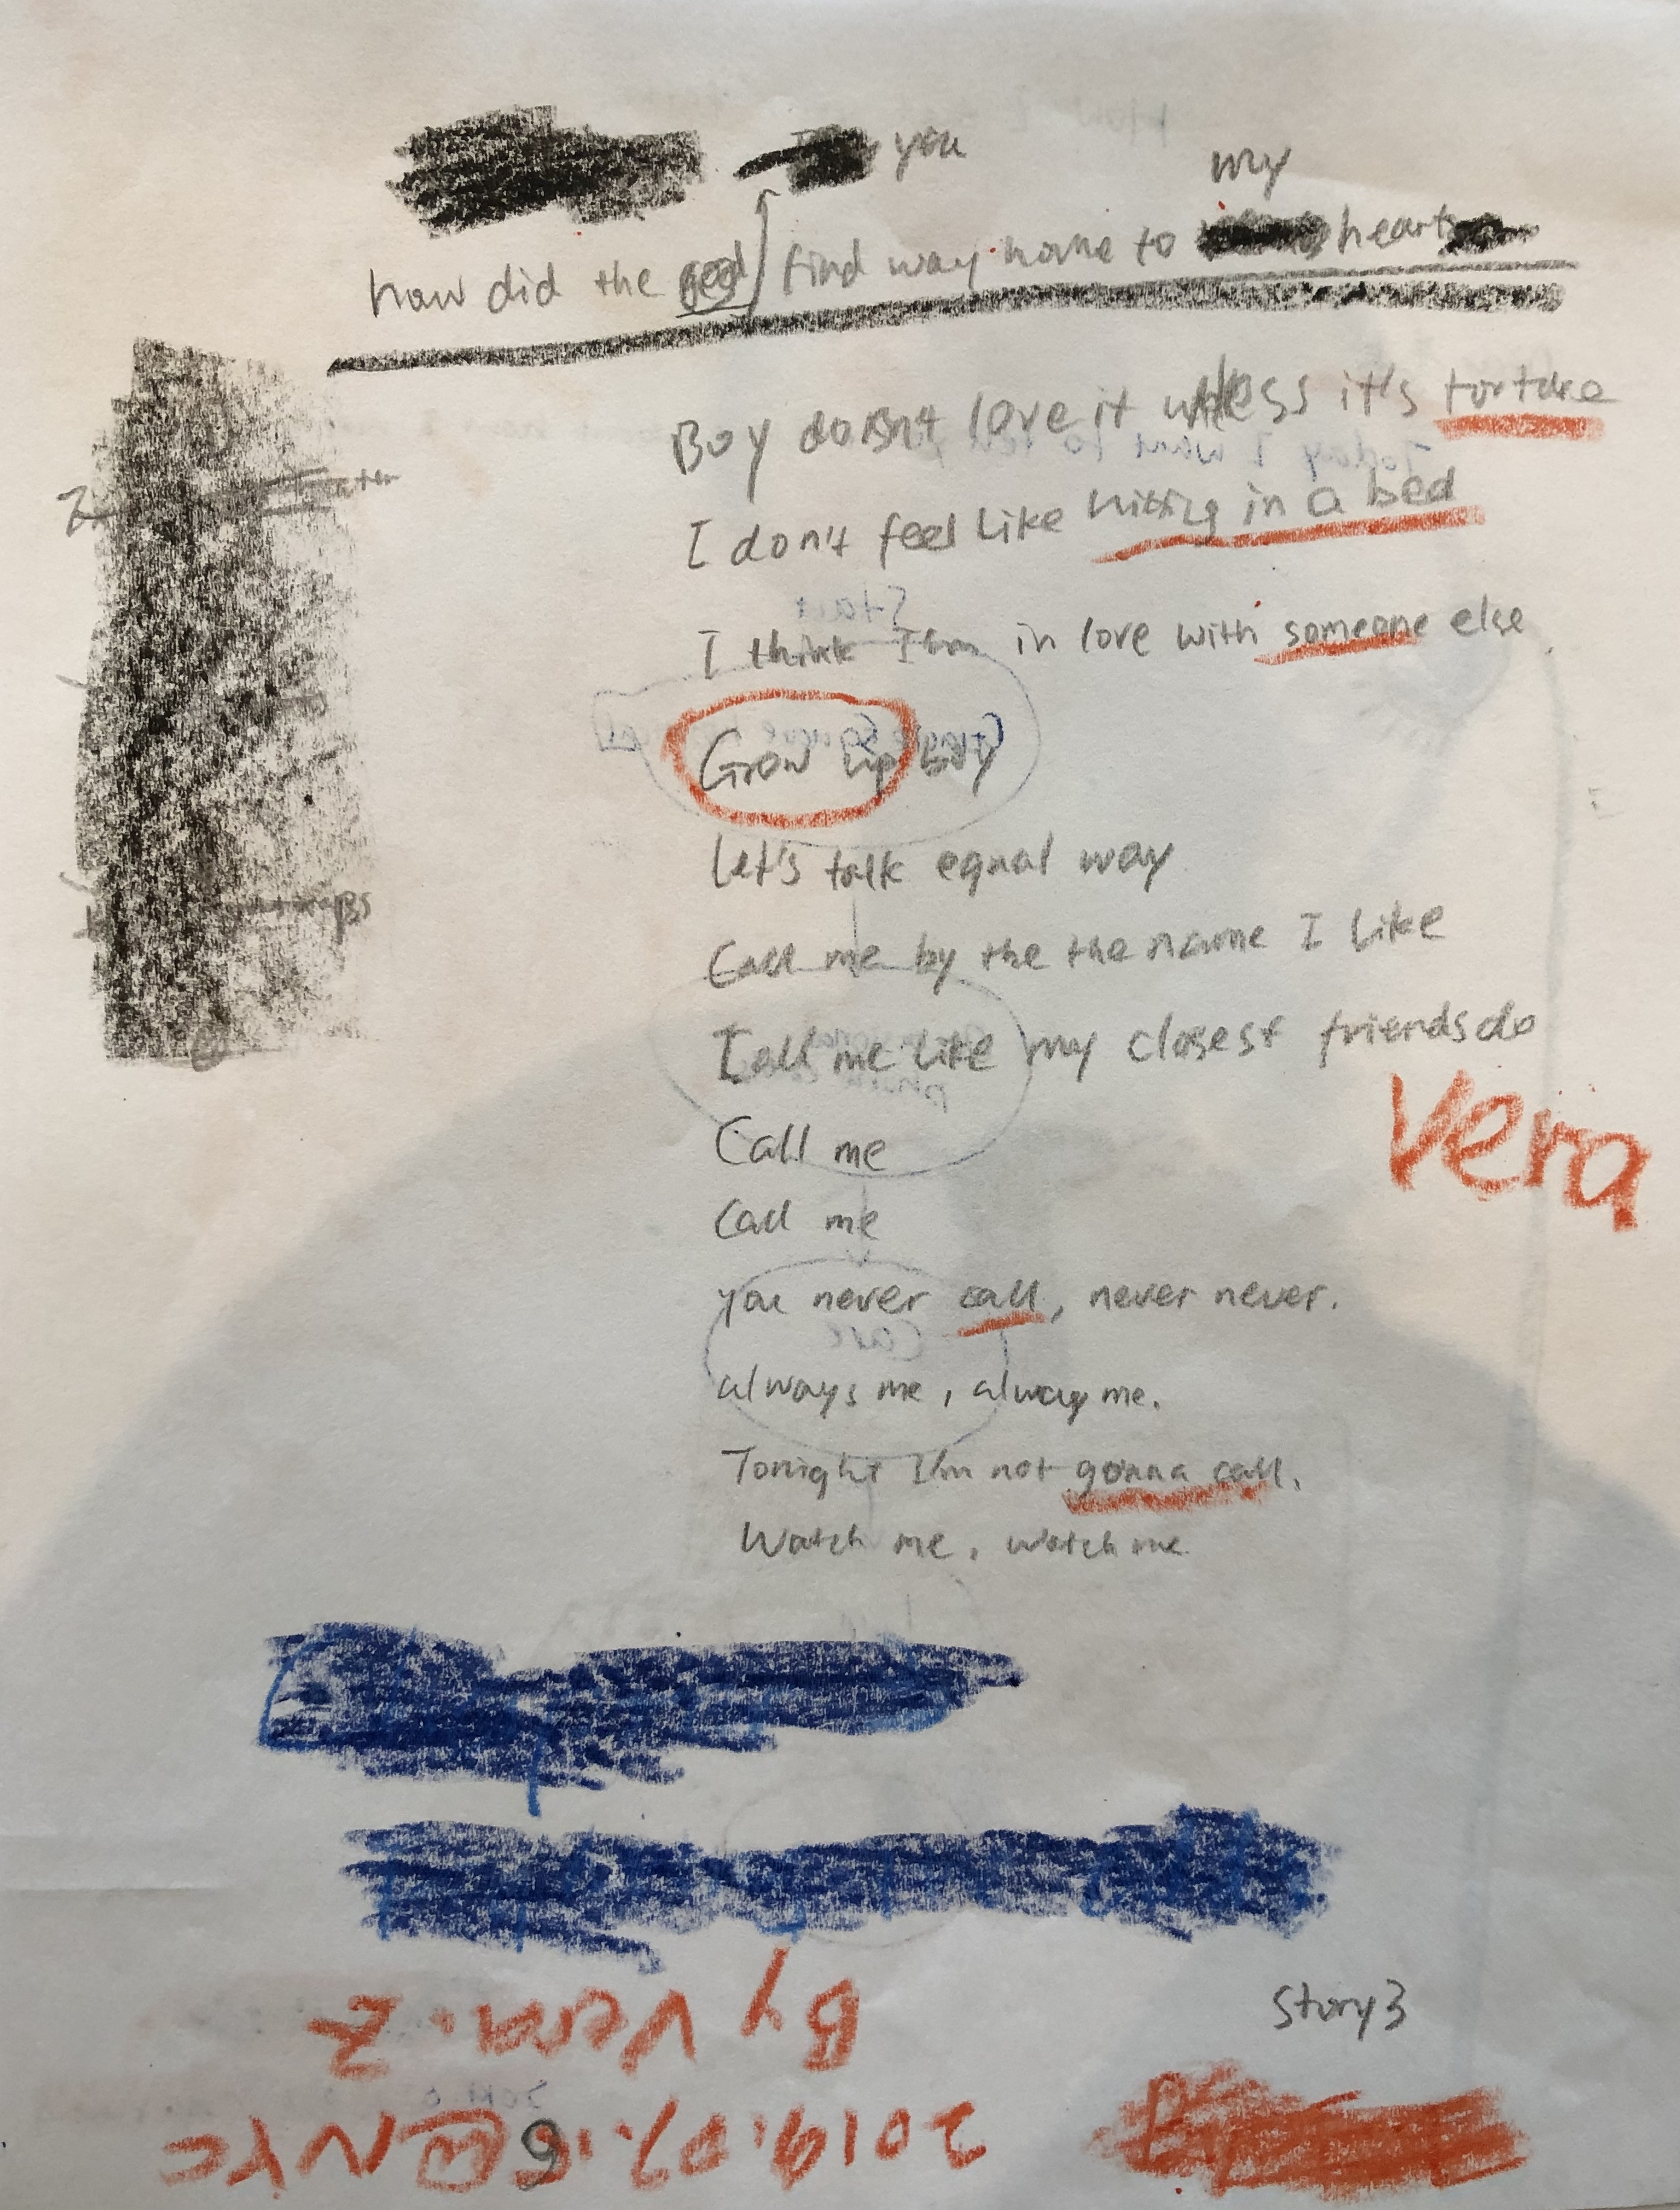 you
my
how did the find way home to heart
Boy doesn't love it unless it's torture
I don't feel like hitting in a bed
I think I'm in love with someone else
Grow up boy
Let's talk equal way
Call me by the the name I like
Call me like my closest friends do
Vera
Call me
Call me
you never call, never never.
always me, alway me.
Tonight I'm not gonna call.
Watch me, watch me
Story 3
By Vera. Z
2019.07.16@NYC